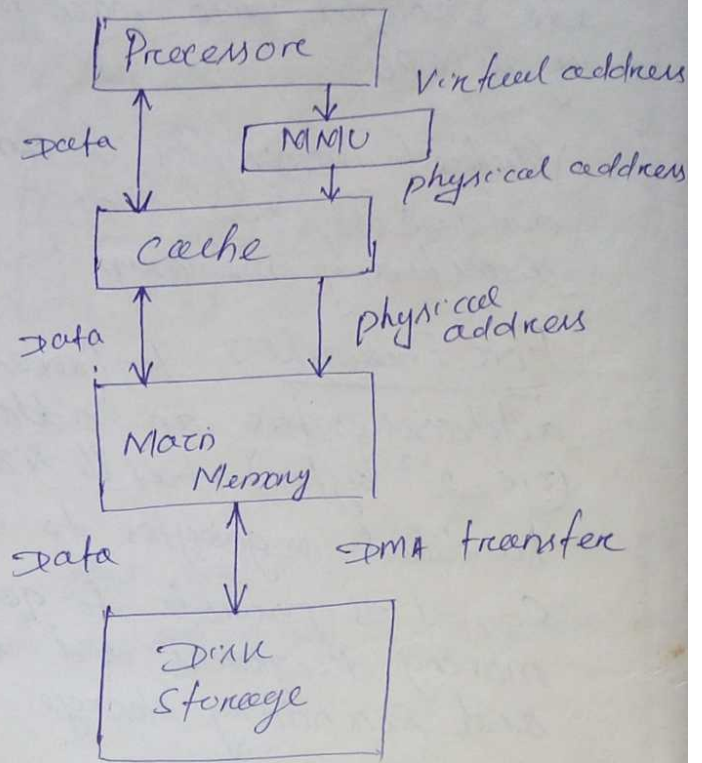 Processore
Virtual address
Data
MMU
physical address
Cache
Data
physical
address
Main
Memory
Data
DMA transfer
Disk
Storage